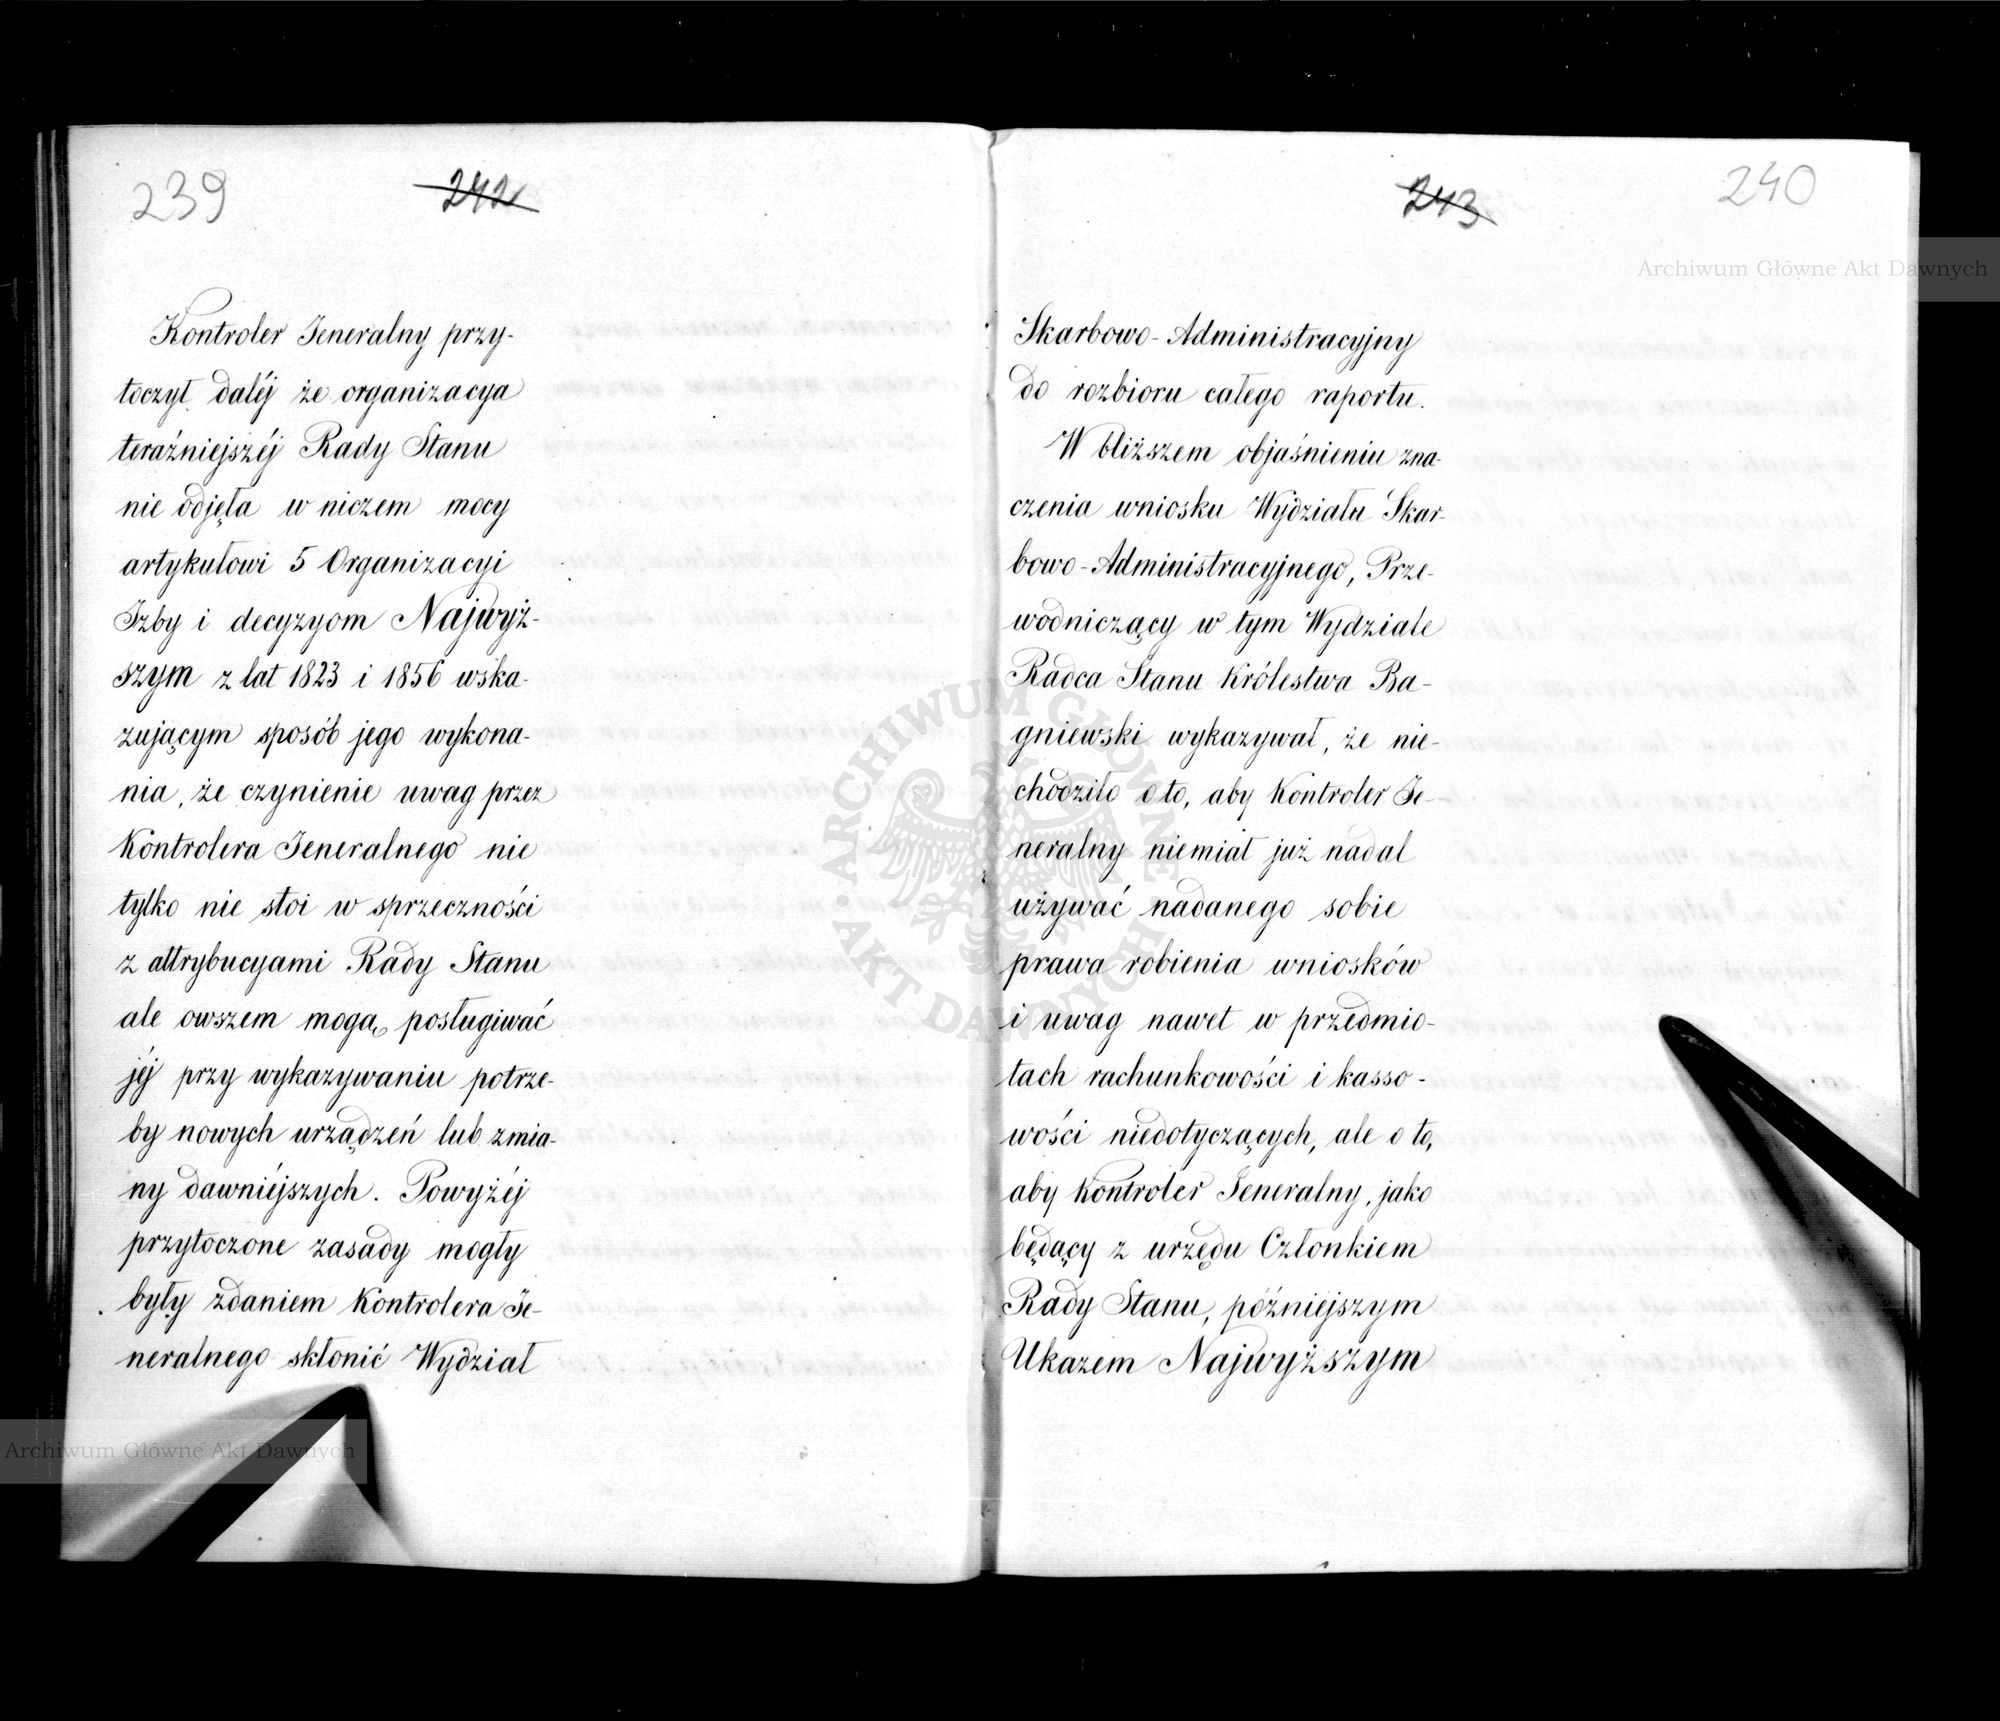 239
242
Kontroler Jeneralny przy-
toczył daléj że organizacya
teraźniejszéj Rady Stanu
nie odjęła w niczem mocy
artykułowi 5 Organizacyi
Izby i decyzyom Najwyż-
szym z lat 1823 i 1856 wska-
zującym sposób jego wykona-
nia, że czynienie uwag przez
Kontrolera Jeneralnego nie
tylko nie stoi w sprzeczności
z attrybucyami Rady Stanu
ale owszem mogą posługiwać
jéj przy wykazywaniu potrze-
by nowych urządzeń lub zmia-
ny dawniéjszych. Powyżéj
przytoczone zasady mogły
były zdaniem Kontrolera Je-
neralnego skłonić Wydział
243
240
Skarbowo-Administracyjny
do rozbioru całego raportu.
W bliższem objaśnieniu zna-
czenia wniosku Wydziału Skar-
bowo-Administracyjnego, Prze-
wodniczący w tym Wydziale
Radca Stanu Królestwa Ba-
gniewski wykazywał, że nie-
chodziło o to, aby Kontroler Je-
neralny niemiał już nadal
używać nadanego sobie
prawa robienia wniosków
i uwag nawet w przedmio-
tach rachunkowości i kasso-
wości niedotyczących, ale o to,
aby Kontroler Jeneralny, jako
będący z urzędu Członkiem
Rady Stanu, późniejszym
Ukazem Najwyższym
Archiwum Główne Akt Dawnych
ARCHIWUM GŁÓWNE
AKT DAWNYCH
Archiwum Główne Akt Dawnych